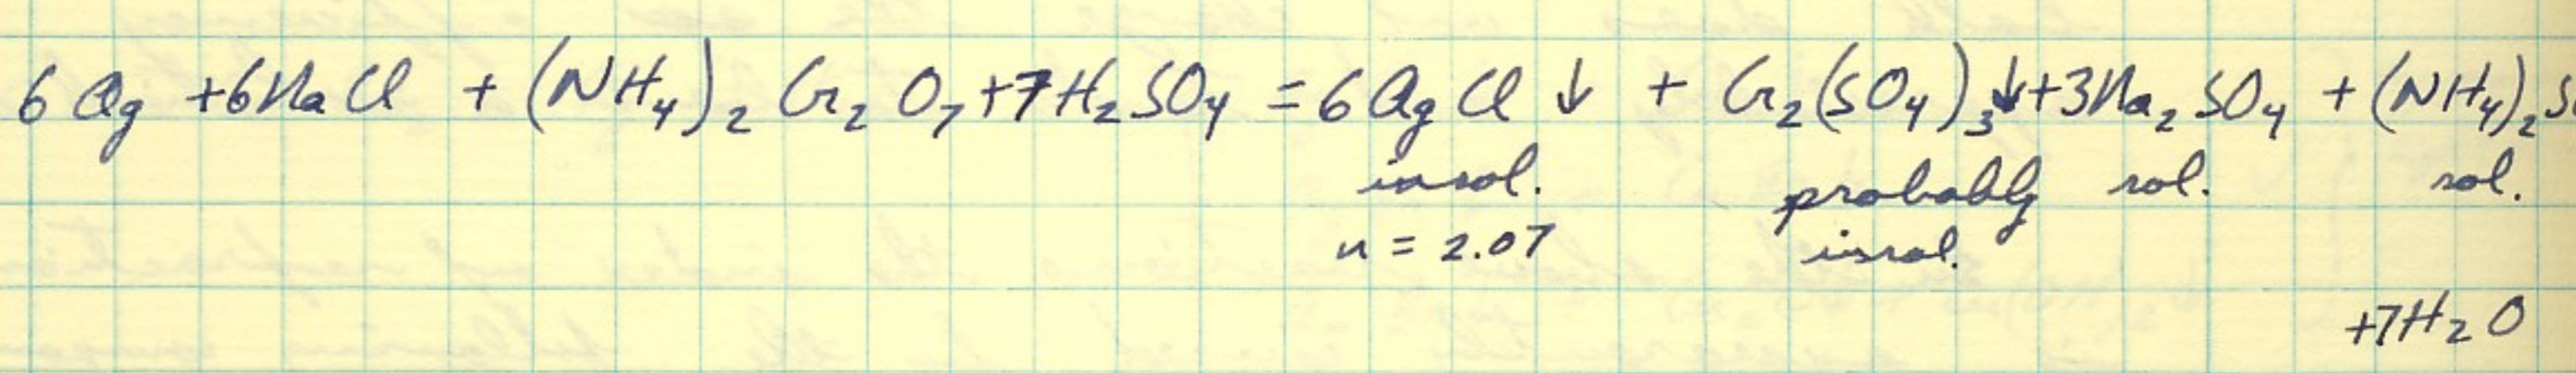 6Ag + 6NaCl + (NH₄)₂Cr₂O₇ + 7H₂SO₄ = 6AgCl ↓ + Cr₂(SO₄)₃↓ + 3Na₂SO₄ + (NH₄)₂S
insol. probably sol. sol.
n = 2.07 insol.
+7H₂O